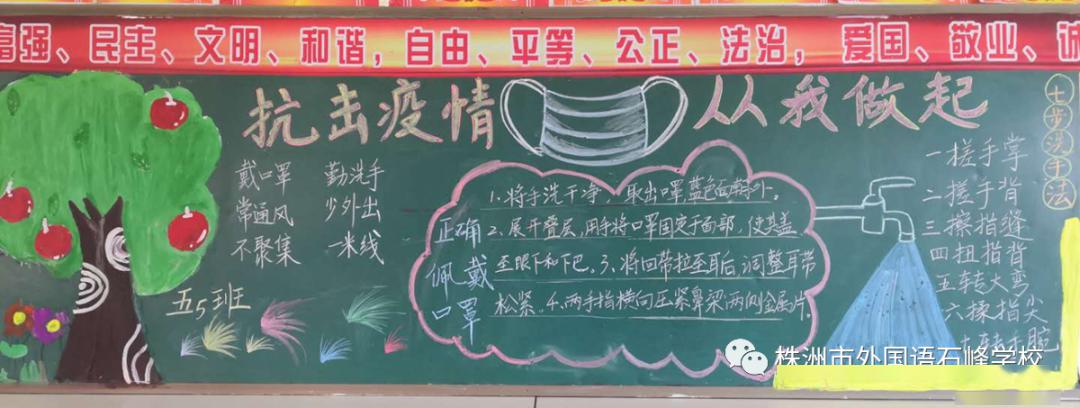 富强、民主、文明、和谐，自由、平等、公正、法治，爱国、敬业、诚
抗击疫情 从我做起
戴口罩 勤洗手
常通风 少外出
不聚集 一米线
五5班
正确
佩戴
口罩
1.将手洗干净，取出口罩,蓝色面朝外。
2、展开叠层,用手将口罩固定于面部,使其盖
至眼下和下巴。3、将口带拉至耳后,调整耳带
松紧。4.两手指横向压紧鼻梁两侧金属片
七步洗手法
一搓手掌
二搓手背
三擦指缝
四扭指背
五转大弯
六揉指尖
七转手腕
株洲市外国语石峰学校